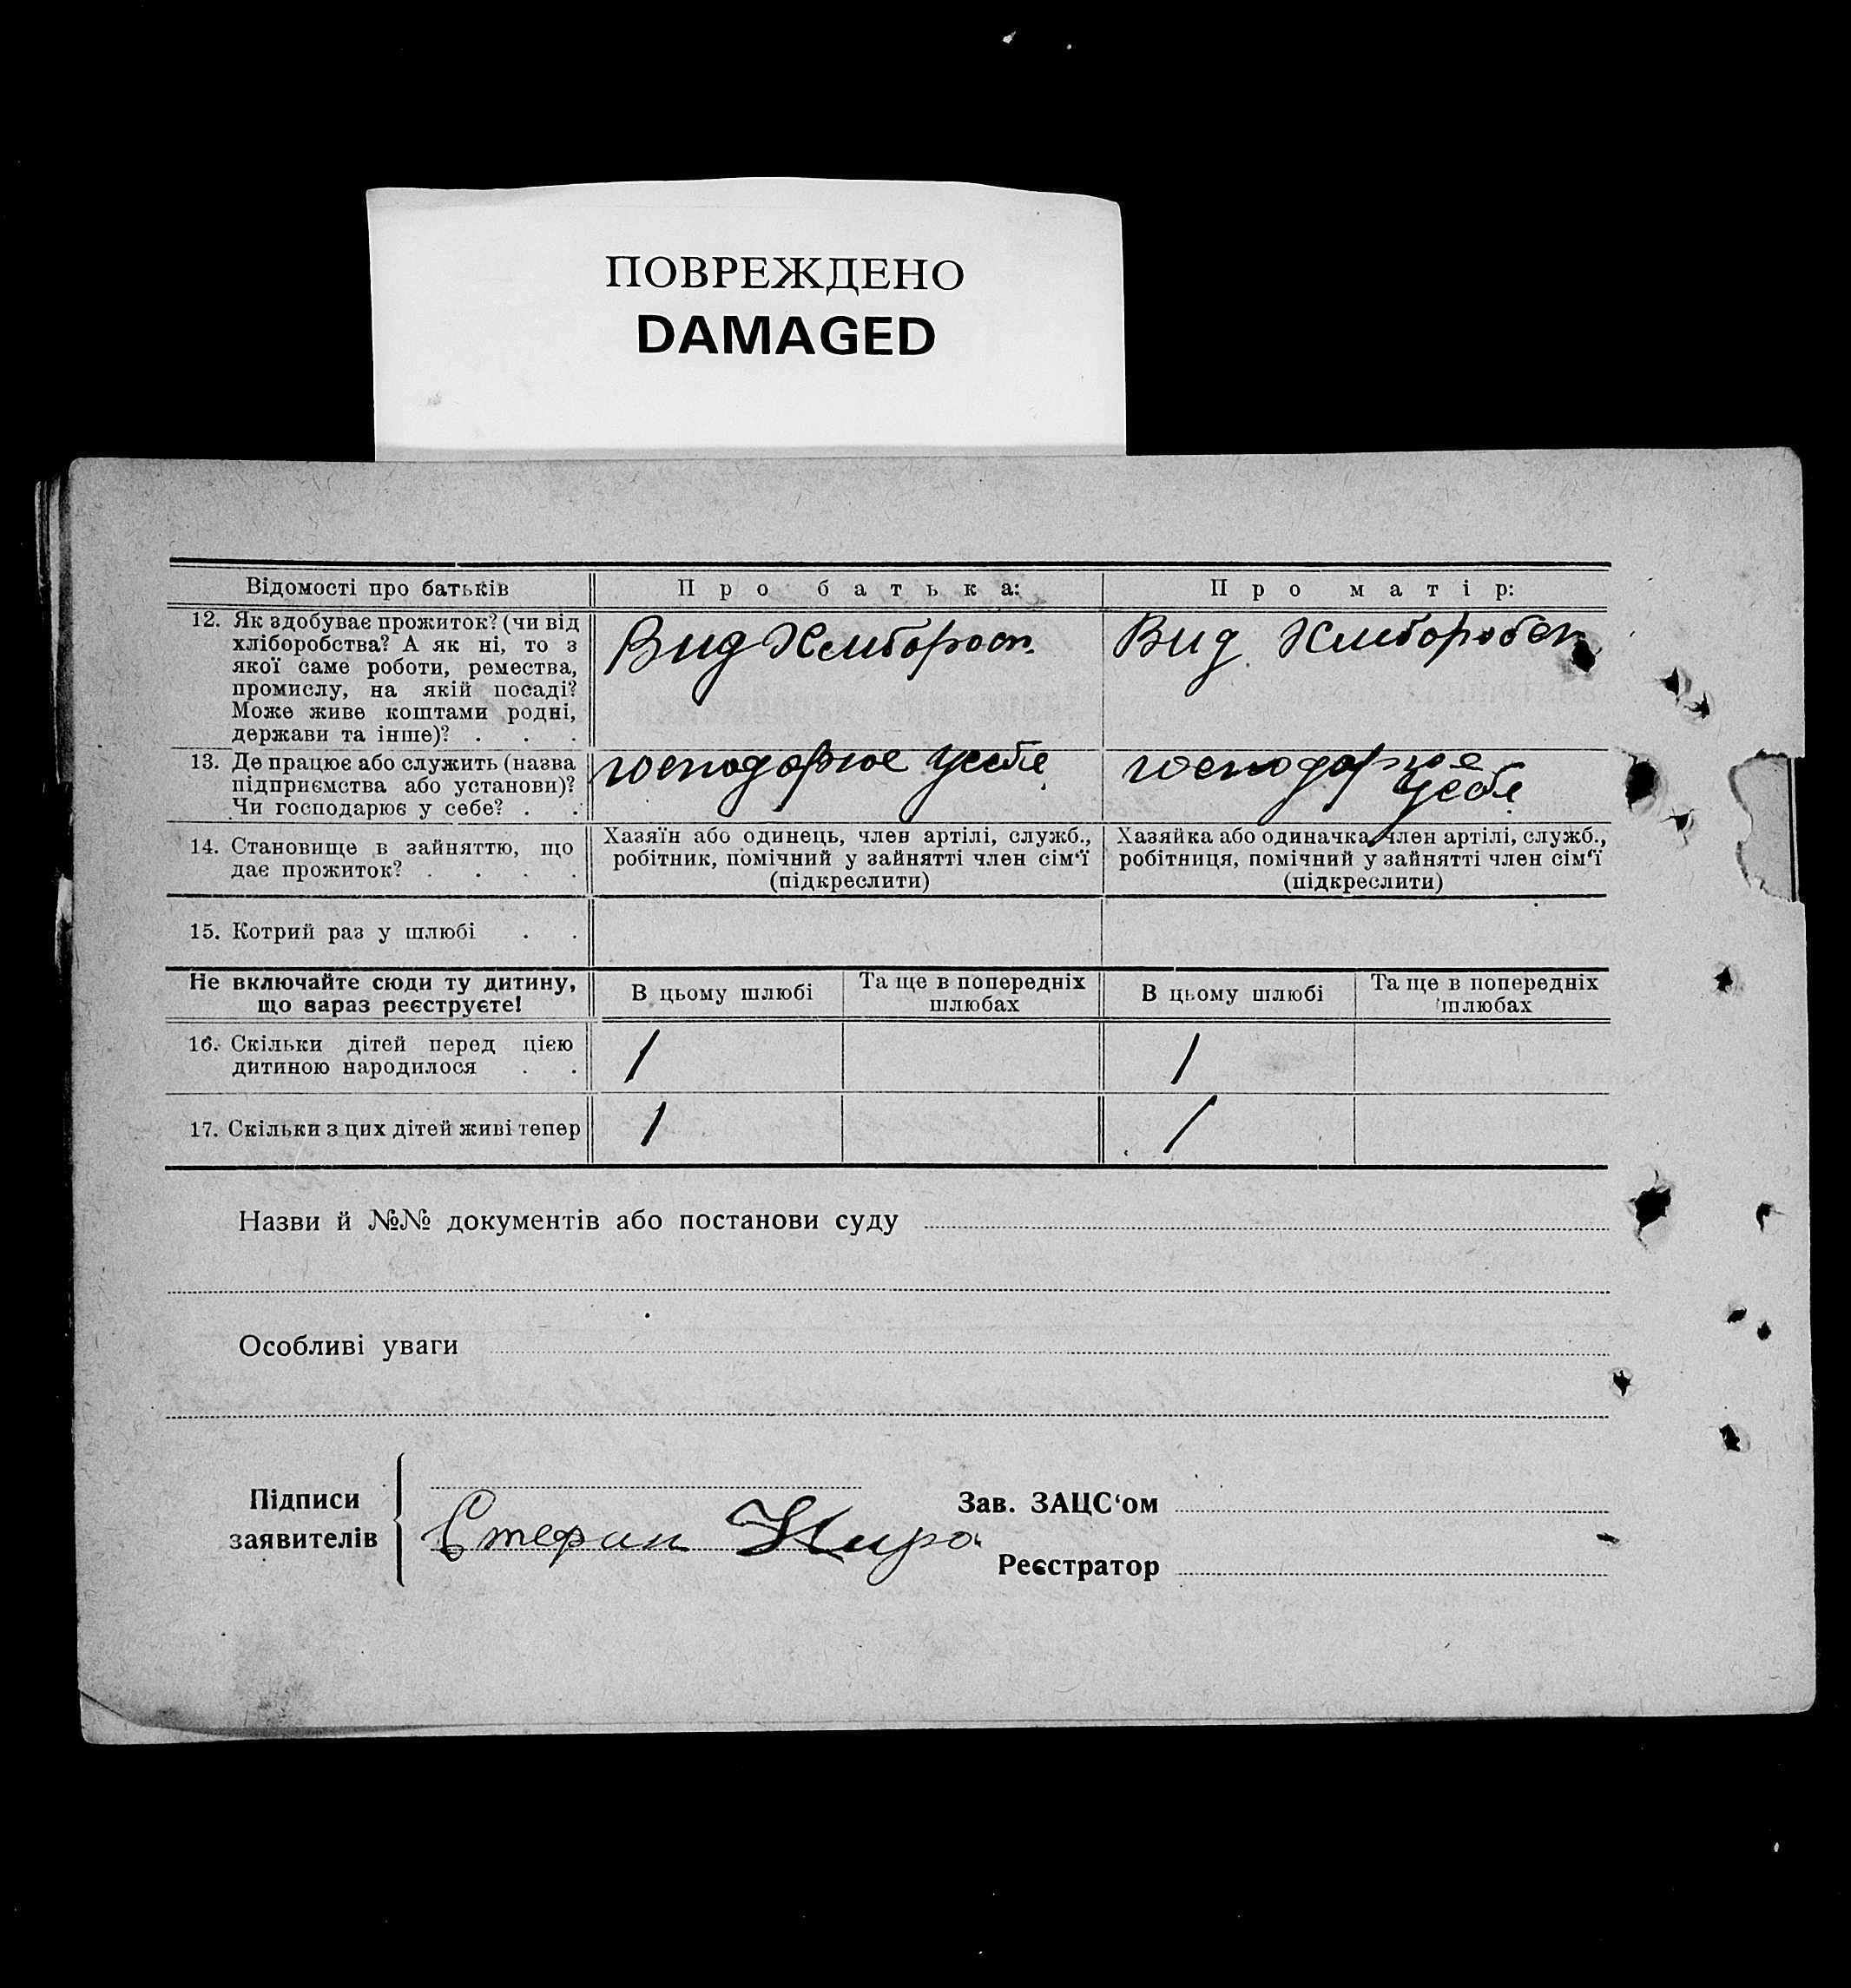 ПОВРЕЖДЕНО
DAMAGED
Відомості про батьків
Про батька:
Про матір:
12. Як здобуває прожиток? (чи від
хліборобства? А як ні, то з
якої саме роботи, ремества,
промислу, на якій посаді?
Може живе коштами родні,
держави та інше)? . . .
Вид Хлиборост.
Вид Хлиборобст
13. Де працює або служить (назва
підприємства або установи)?
Чи господарює у себе? . .
господарює усебе
господарює
усебе
14. Становище в зайняттю, що
дає прожиток? . . . .
Хазяїн або одинець, член артілі, служб.,
робітник, помічний у зайнятті член сім‘ї
(підкреслити)
Хазяйка або одиначка, член артілі, служб.,
робітниця, помічний у зайнятті член сім‘ї
(підкреслити)
15. Котрий раз у шлюбі . .
Не включайте сюди ту дитину,
що зараз реєструєте!
В цьому шлюбі
Та ще в попередніх
шлюбах
В цьому шлюбі
Та ще в попередніх
шлюбах
16. Скільки дітей перед цією
дитиною народилося . .
1
1
17. Скільки з цих дітей живі тепер
1
1
Назви й №№ документів або постанови суду
Особливі уваги
Підписи
заявителів
Стефан
Зав. ЗАЦС‘ом
Реєстратор